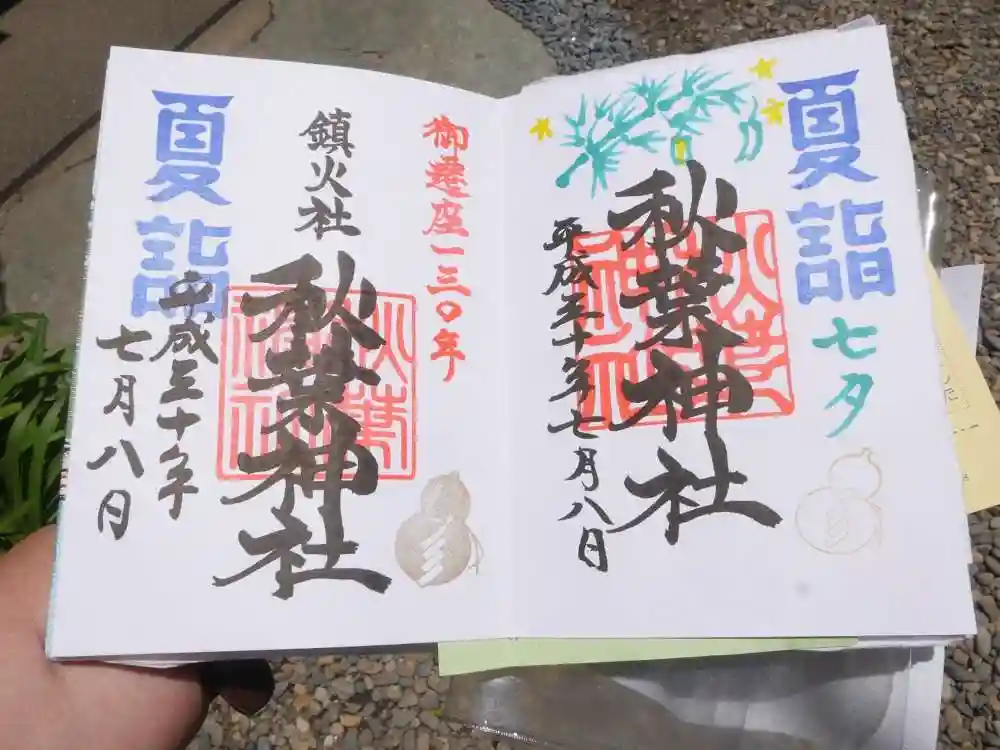 夏詣
七夕
秋葉神社
平成三十年七月八日
御遷座一三〇年
鎮火社
秋葉神社
平成三十年
七月八日
夏詣